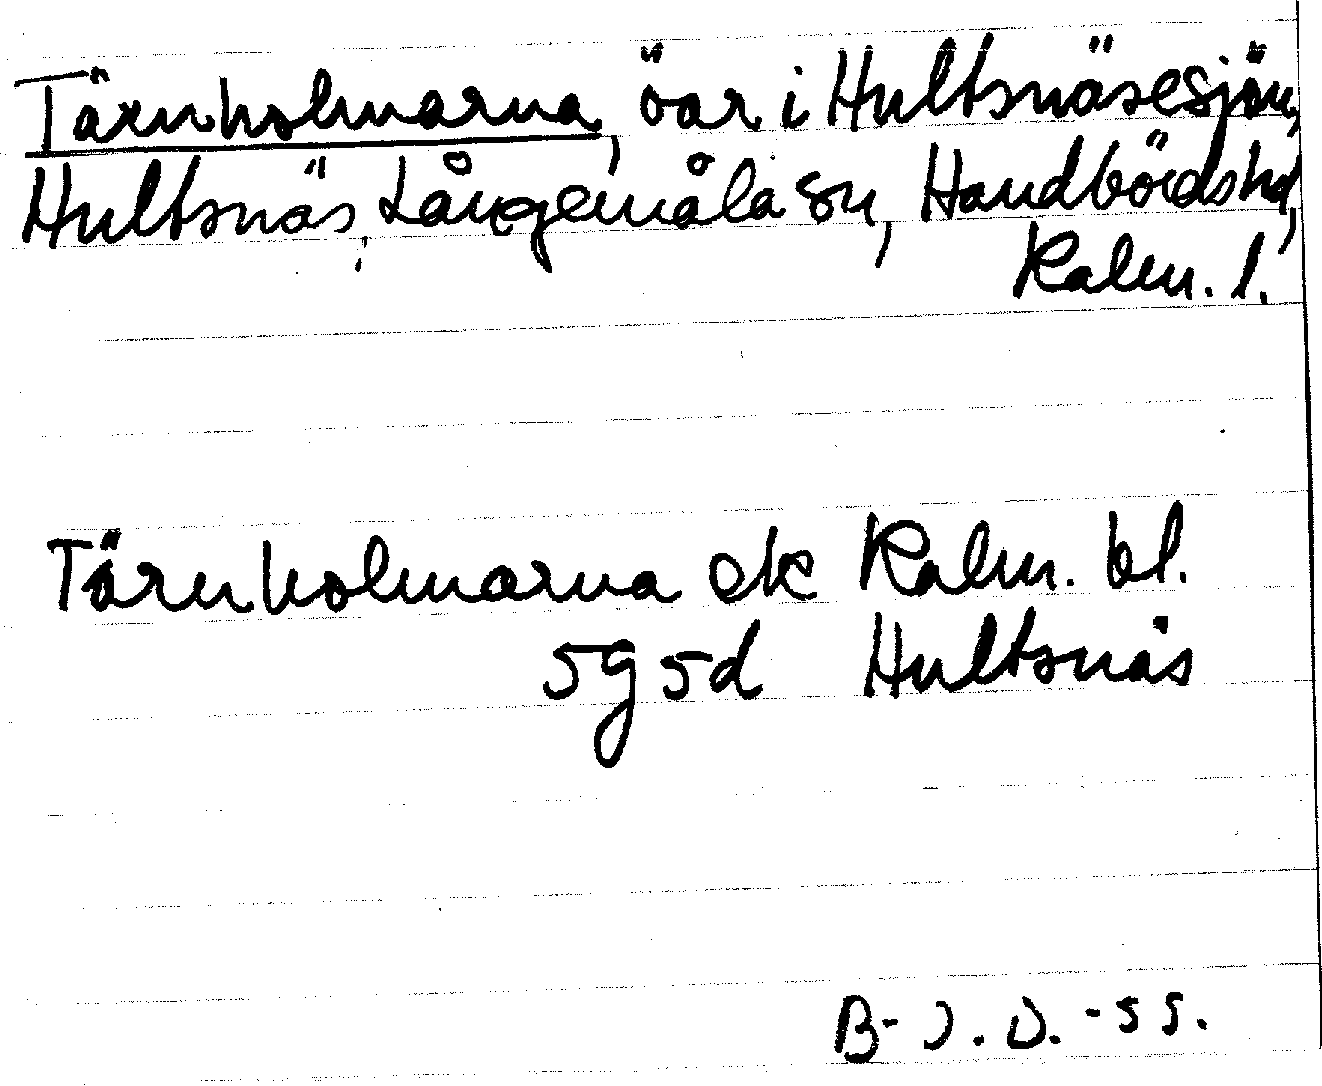 Tärnholmarna, öar i Hultsnäsesjön,
Hultsnäs, Långemåla sn, Handbörds hd,
Kalm. l.
Tärnholmarna ek Kalm. bl.
5g5d Hultsnäs
B-J. D. -55.